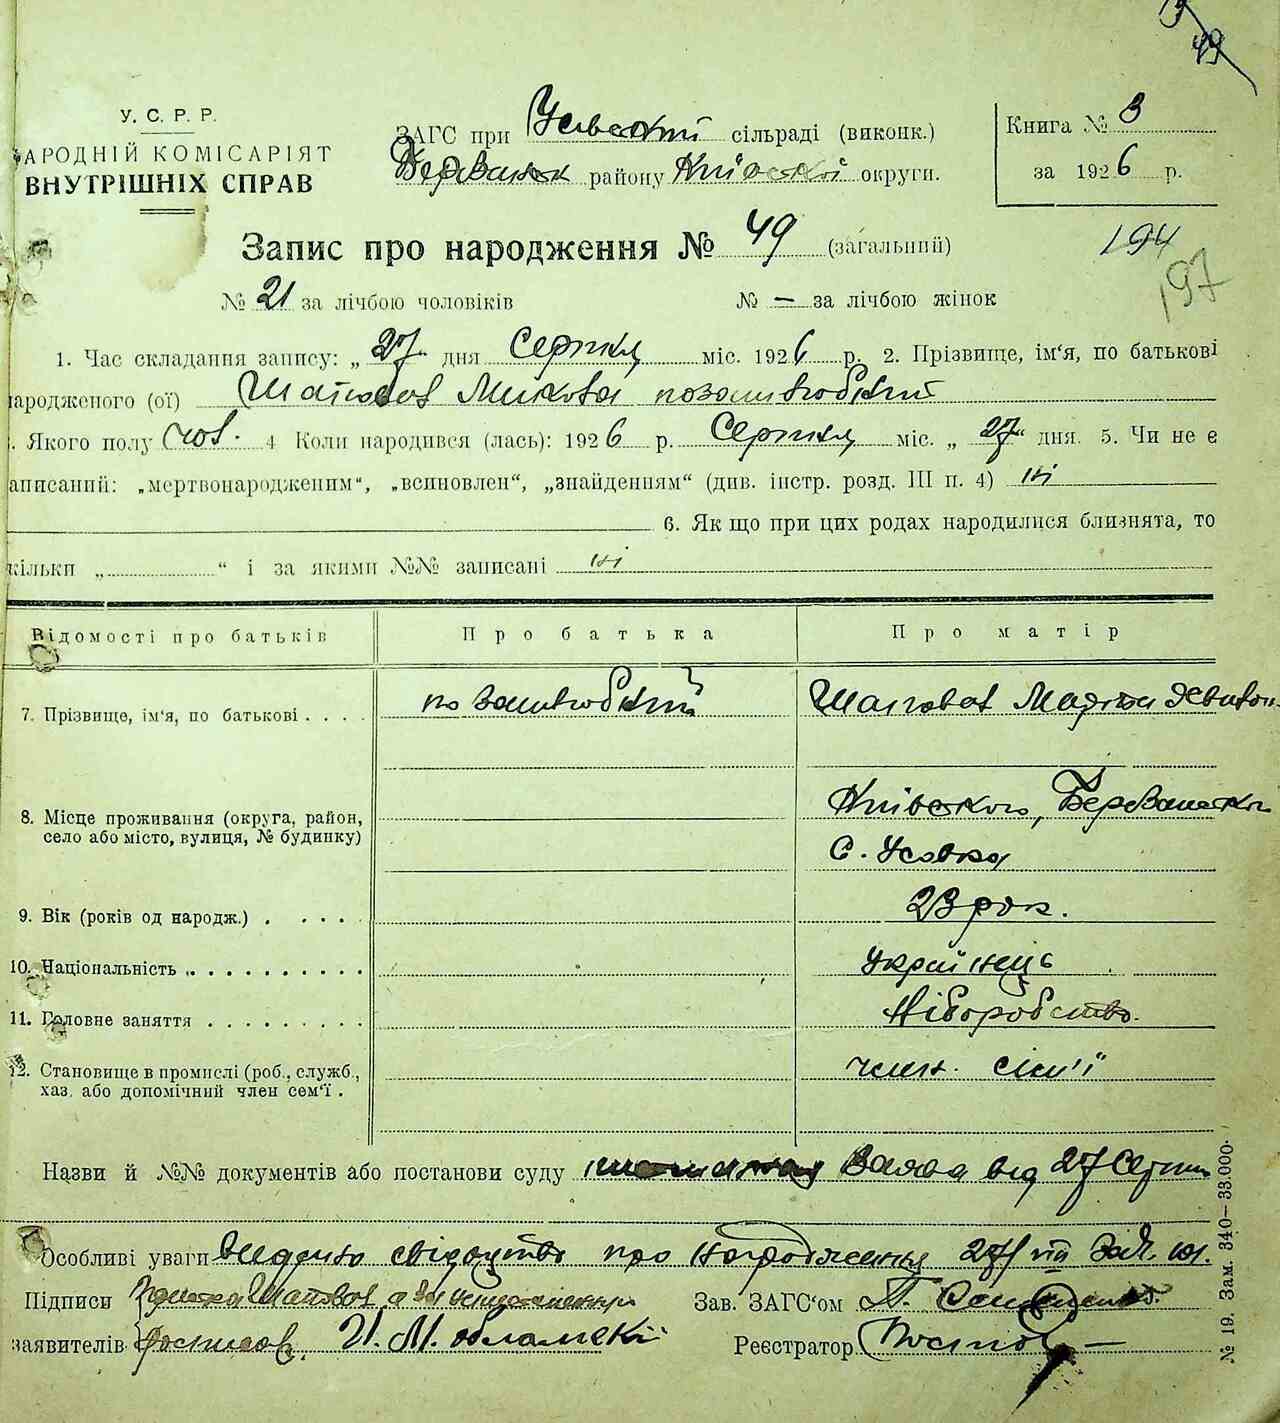 49
У. С. Р. Р.
АРОДНІЙ КОМІСАРІЯТ
ВНУТРІШНІХ СПРАВ
ЗАГС при Усівській сільраді (виконк.)
району Київській округи.
Книга № 3
за 1926 р.
Запис про народження № 49 (загальний)
194
197
№ 21 за лічбою чоловіків № — за лічбою жінок
1. Час складання запису: „ 27 дня Серпня міс. 1926 р. 2. Прізвище, ім‘я, по батькові
ародженого (ої) Шаповал Микола позашлюбний
. Якого полу чол. 4 Коли народився (лась): 1926 р. Серпня міс. „ 27“ дня. 5. Чи не є
аписаний: „мертвонародженим“, „вспновлен“, „знайденням“ (див. інстр. розд. III п. 4) ні
6. Як що при цих родах народилися близнята, то
кільки „ “ і за якими №№ записані ні
Відомості про батьків Про батька Про матір
7. Прізвище, ім‘я, по батькові . . . . позашлюбний Шаповал Марта
8. Місце проживання (округа, район, Київского,
село або місто, вулиця, № будинку) с. Усовка
9. Вік (років од народж.) . . . . . 23 рок.
10. Національність . . . . . . . . . . Українець
11. Головне заняття . . . . . . . . . Хліборобство.
12. Становище в промислі (роб., служб., член. сім'ї
хаз. або допомічний член сем‘ї .
Назви й №№ документів або постанови суду Заява від 27 Серпня
Особливі уваги Видано свідоцтво про народження
Підписи Шаповал а Зав. ЗАГС‘ом
заявителів И. М. Реєстратор
№ 19. Зам. 340–33.000.